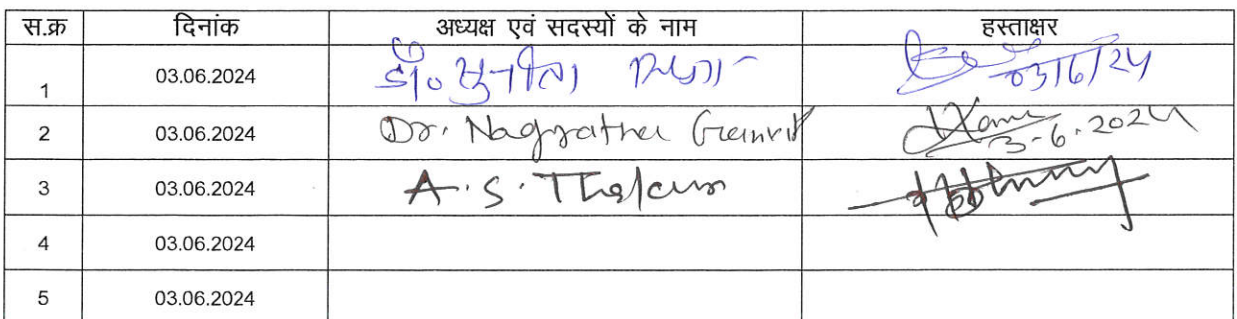 स.क्र दिनांक अध्यक्ष एवं सदस्यों के नाम हस्ताक्षर
1 03.06.2024 डॉ. सुनीता 03/6/24
2 03.06.2024 Dr. Nagratna 3-6-2024
3 03.06.2024 A.S. Thakur
4 03.06.2024
5 03.06.2024